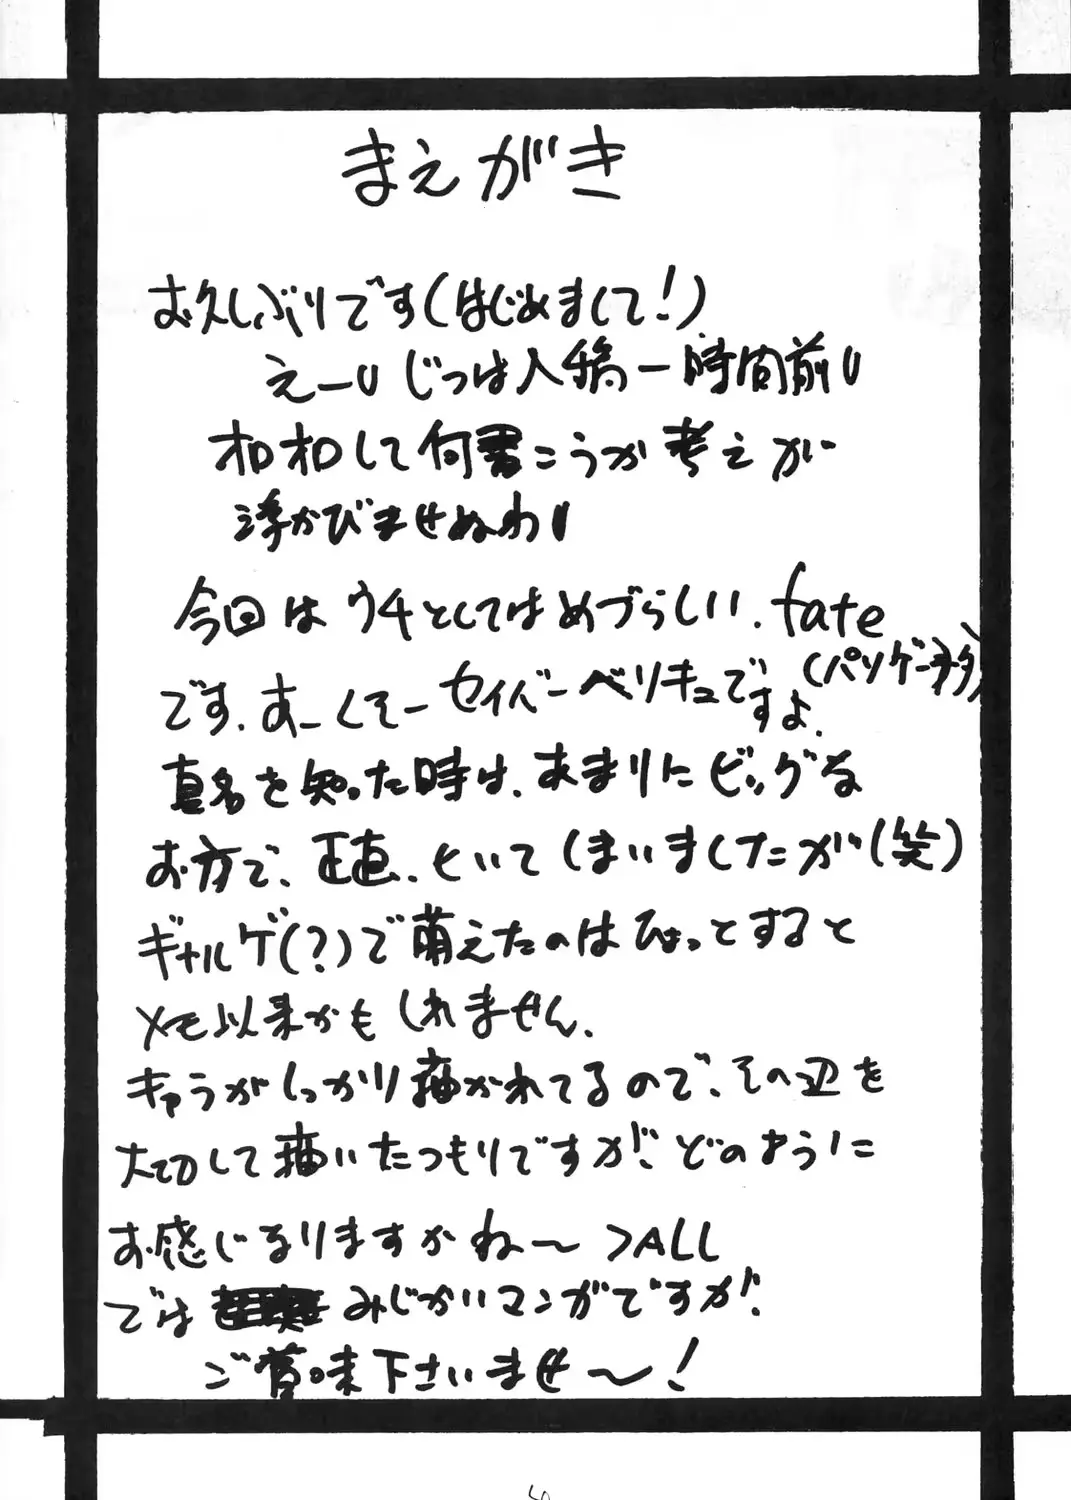 まえがき
お久しぶりです(はじめまして!)
えーじつは入稿一時間前
オロオロして何書こうか考えが
浮かびませぬわ
今回はウチとしてはめづらしい、fate
です。あーくそーセイバーベリキュですよ。
(パソゲーヲタ)
真名を知った時は、あまりにビッグな
お方で、正直、ひいてしまいましたが(笑)
ギャルゲ(?)で萌えたのはひょっとすると
メモ以来かもしれません。
キャラがしっかり描かれてるので、その辺を
大切して描いたつもりですが、どのように
お感じなりますかね〜>ALL
では みじかいマンガですが、
ご賞味下さいませ〜!